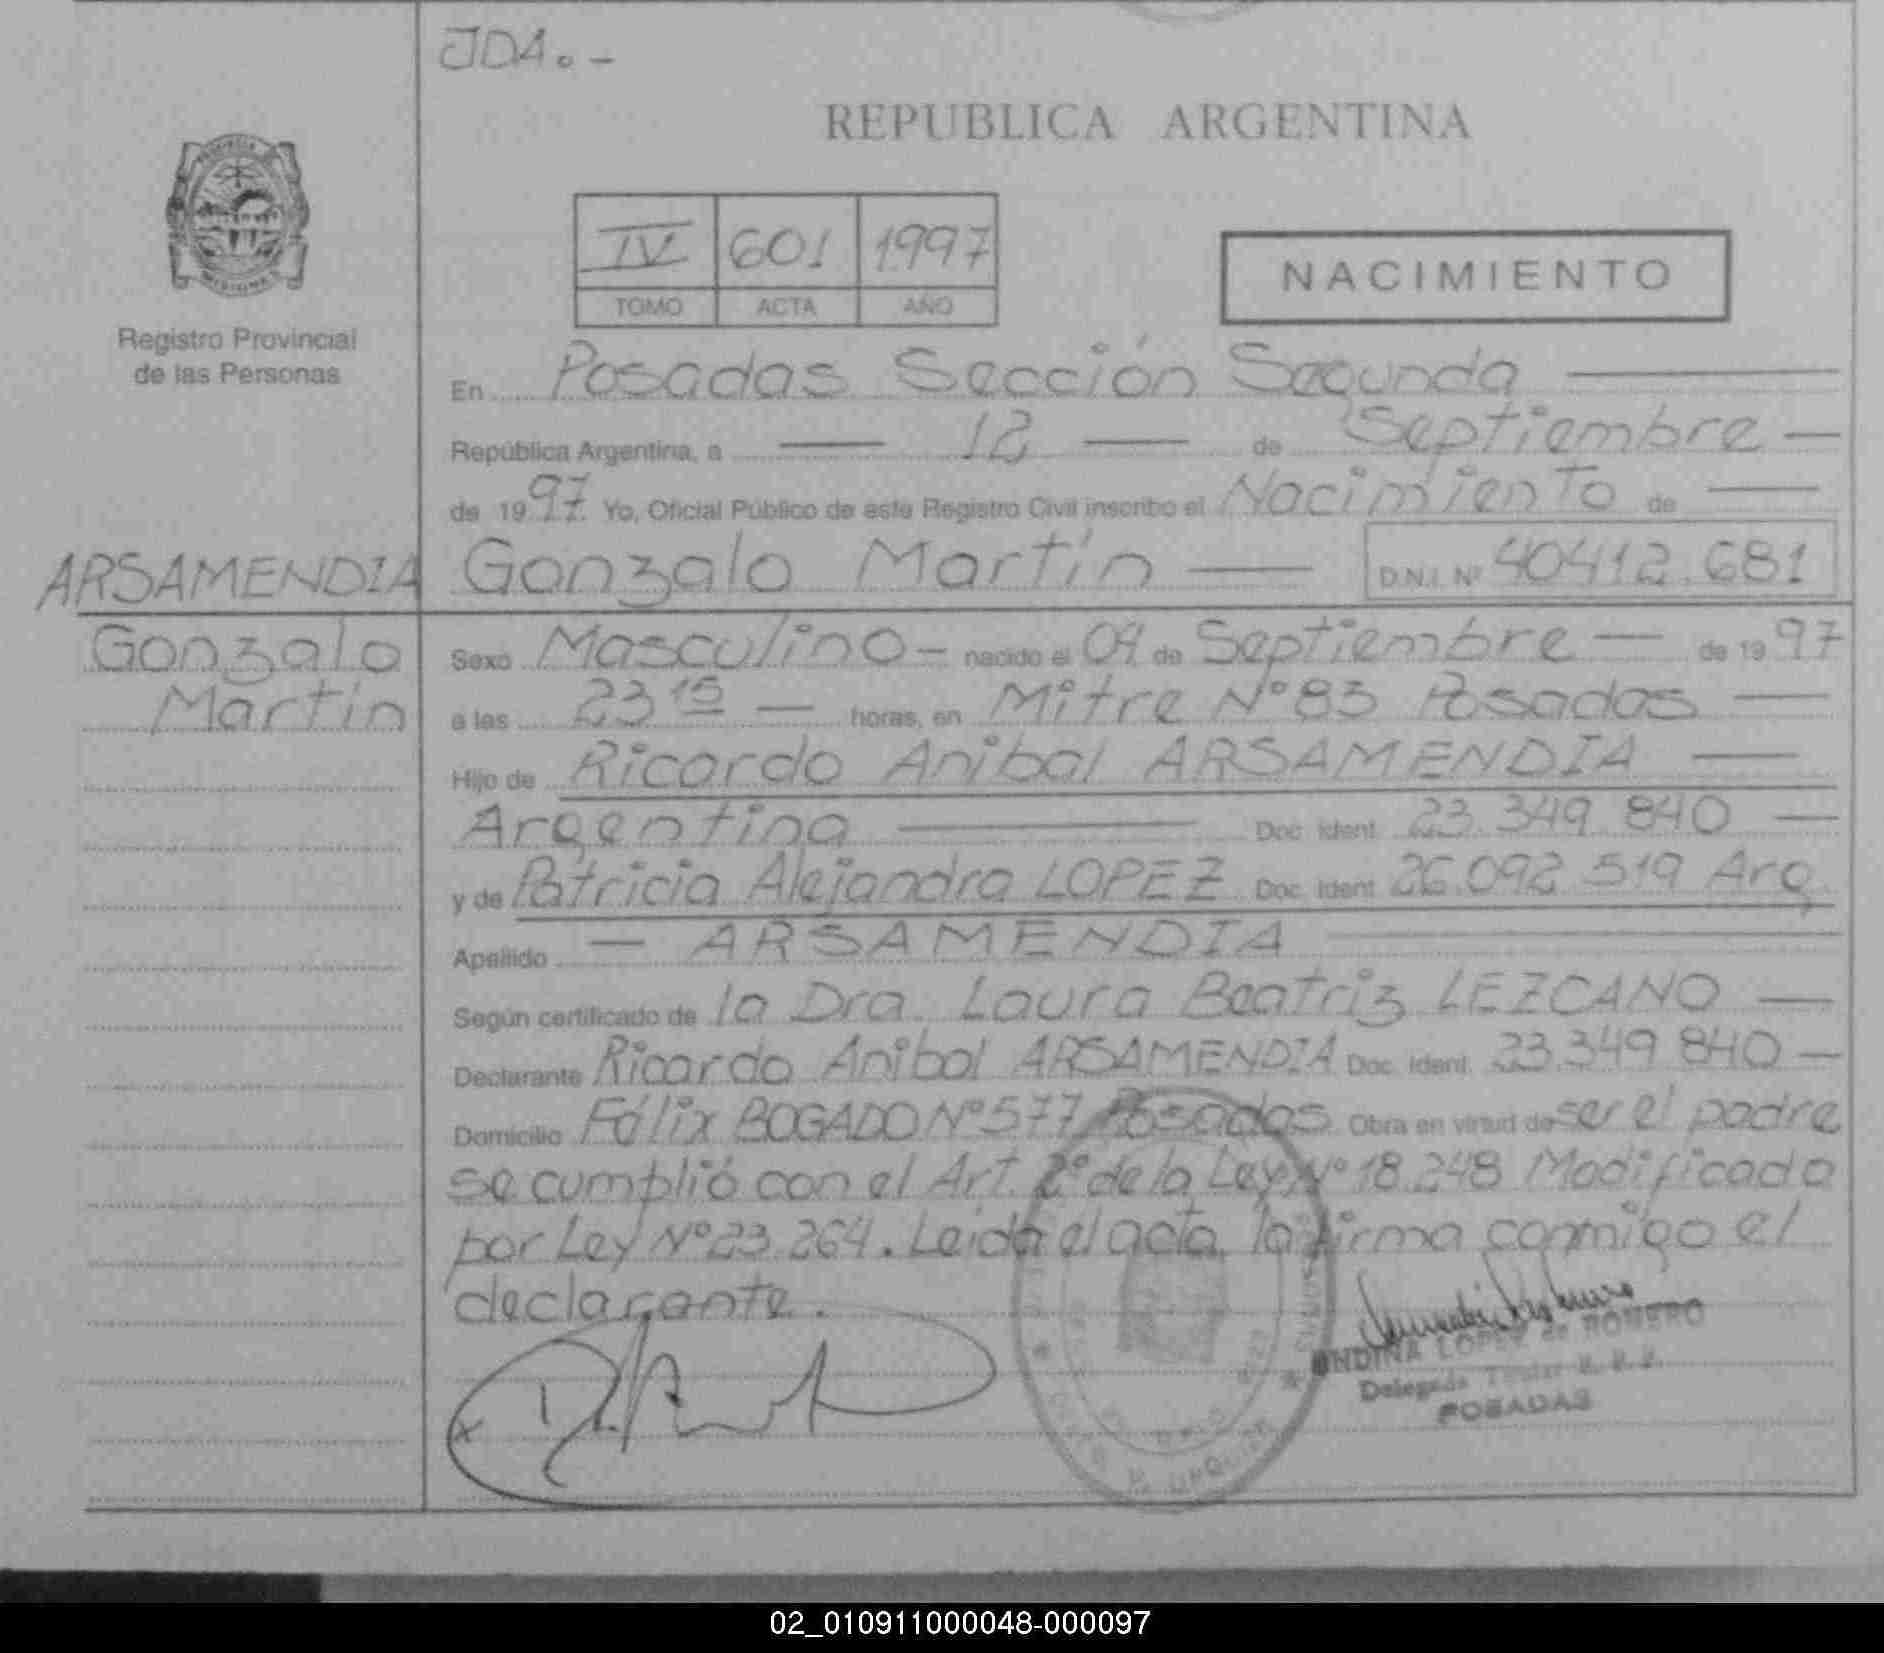 JDA.-
REPUBLICA ARGENTINA
IV 601 1997
TOMO ACTA AÑO
NACIMIENTO
Registro Provincial
de las Personas
En Posadas Sección Segunda
República Argentina, a — 12 — de Septiembre —
de 1997. Yo, Oficial Público de este Registro Civil inscribo el Nacimiento de —
ARSAMENDIA
Gonzalo
Martín
Gonzalo Martín — D.N.I. Nº 40412.681
Sexo Masculino - nacido el 04 de Septiembre — de 1997
a las 23 15 — horas, en Mitre Nº 83 Posadas —
Hijo de Ricardo Anibal ARSAMENDIA —
Argentina — Doc. Ident. 23.349.840 —
y de Patricia Alejandra LOPEZ Doc. Ident. 26.092.519 Arg.
Apellido — ARSAMENDIA —
Según certificado de la Dra. Laura Beatriz LEZCANO —
Declarante Ricardo Anibal ARSAMENDIA Doc. Ident. 23.349.840 —
Domicilio Félix BOGADO Nº 577 Posadas. Obra en virtud de ser el padre
se cumplió con el Art. 2º de la Ley Nº 18.248 Modificada
por Ley Nº 23.264. Leida el acta, la firma conmigo el
declarante.
LOPEZ de ROMERO
Delegada Titular
POSADAS
02_010911000048-000097